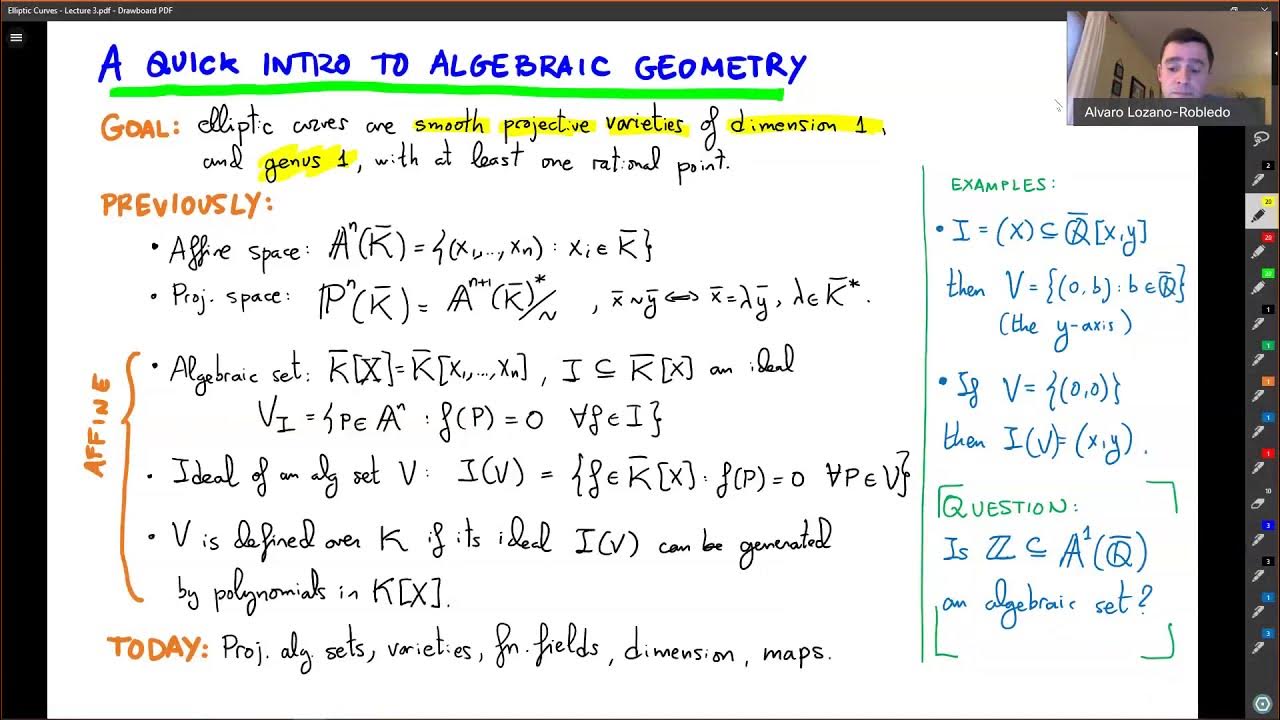 Elliptic Curves - Lecture 3.pdf - Drawboard PDF
A QUICK INTRO TO ALGEBRAIC GEOMETRY
Alvaro Lozano-Robledo
GOAL: elliptic curves are smooth projective varieties of dimension 1,
and genus 1, with at least one rational point.
PREVIOUSLY:
• Affine space: 𝔸ⁿ(K̄) = {(x₁,...,xₙ) : xᵢ ∈ K̄}
• Proj. space: ℙⁿ(K̄) = 𝔸ⁿ⁺¹(K̄)*/~ , x̄ ~ ȳ ⟺ x̄ = λȳ, λ ∈ K̄*.
AFFINE
• Algebraic set: K̄[X] = K̄[x₁,...,xₙ], I ⊆ K̄[X] an ideal
V_I = {P ∈ 𝔸ⁿ : f(P) = 0 ∀f ∈ I}
• Ideal of an alg set V: I(V) = {f ∈ K̄[X] : f(P) = 0 ∀P ∈ V}
• V is defined over K if its ideal I(V) can be generated
by polynomials in K[X].
TODAY: Proj. alg. sets, varieties, fn. fields, dimension, maps.
EXAMPLES:
• I = (x) ⊆ ℚ̄[x,y]
then V = {(0,b) : b ∈ ℚ̄}
(the y-axis)
• If V = {(0,0)}
then I(V) = (x,y).
QUESTION:
Is ℤ ⊆ 𝔸¹(ℚ̄)
an algebraic set?